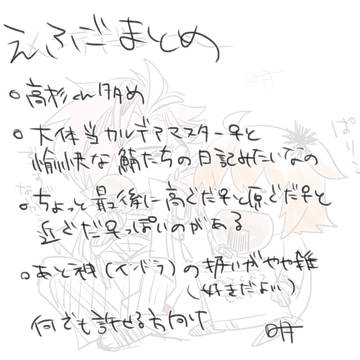 えふごまとめ
○高杉さん多め
○大体当カルデアマスター♀と
愉快な鯖たちの日記みたいなの
○ちょっと最後に高ぐだ♀と原ぐだ♀と
近ぐだ♀っぽいのがある
○あと神(インドラ)の扱いがやや雑
(好きだよい)
何でも許せる方向け